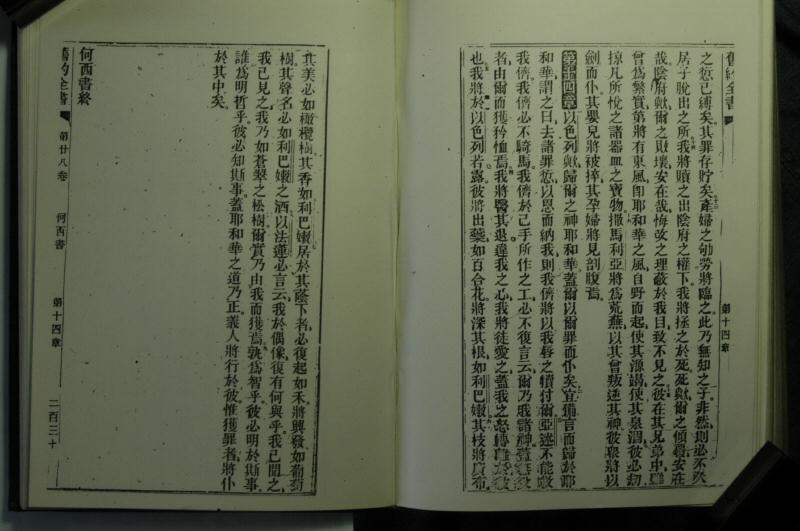 舊約全書
第十四章
之愆已縛矣其罪存貯矣產婦之劬勞將臨之此乃無知之子非然則必不久
居子脫出之所我將贖之出陰府之權下我將拯之於死死歟爾之傾覆安在
哉陰府歟爾之敗壞安在哉悔改之理蔽於我目致不見之彼在其兄弟中雖
曾爲繁實第將有東風即耶和華之風自野而起使其源竭使其泉涸彼必刼
掠凡所悅之諸器皿之寶物撒馬利亞將爲荒蕪以其曾叛逆其神彼衆將以
劍而仆其嬰兒將被摔其孕婦將見剖腹焉
第十四章以色列歟歸爾之神耶和華蓋爾以爾罪而仆矣宜備言而歸於耶
和華謂之曰去諸罪愆以恩而納我則我儕將以我唇之犢付爾亞述不能救
我儕我儕必不騎馬我儕於己手所作之工必不復言云爾乃我諸神蓋無父
者由爾而獲矜恤焉我將醫其退違我之心我將徒愛之蓋我之怒轉離於彼
也我將於以色列若露彼將出蘂如百合花將深其根如利巴嫩其枝將廣布
其美必如橄欖樹其香如利巴嫩居於其蔭下者必復起如禾將興發如葡萄
樹其聲名必如利巴嫩之酒以法蓮必言云我於偶像復有何與乎我已聞之
我已見之我乃如蒼翠之松樹爾實乃由我而獲焉孰爲智乎彼必明於斯事
誰爲明哲乎彼必知斯事蓋耶和華之道乃正義人將行於彼惟獲罪者將仆
於其中矣
何西書終
舊約全書
第廿八卷
何西書
第十四章
二百三十